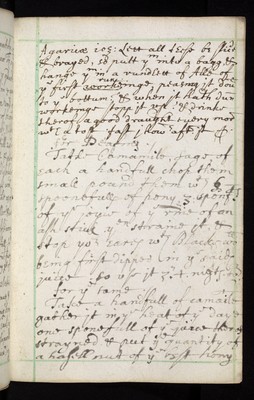 Agarick ioz: Lett all these be slic'd
& brayed, so putt ym into a bagg, &
hange ym in a rundlett of Alle of
ye first running
to ye bottum; & when it hath dun
workeing stopp it upp & drinke
therof a good draught every mor
wt a tost fast 1 howr after it
For Deafnes
Take Camamile, sage of
each a handfull chop them
small pound them wt 6
spoonefulls of hony 2 spoonf
of ye joyce of ye rine of an
ash stick yn straine it, &
stop yor eares wt black wo
being first dipped in ye said
juice so use it 3 4 nights
for ye same
Take a handfull of camaile
gather it in ye heat of ye daye
one sponefull of ye juice therof
strayned & put ye quantity of
a hasell nutt of ye best hony